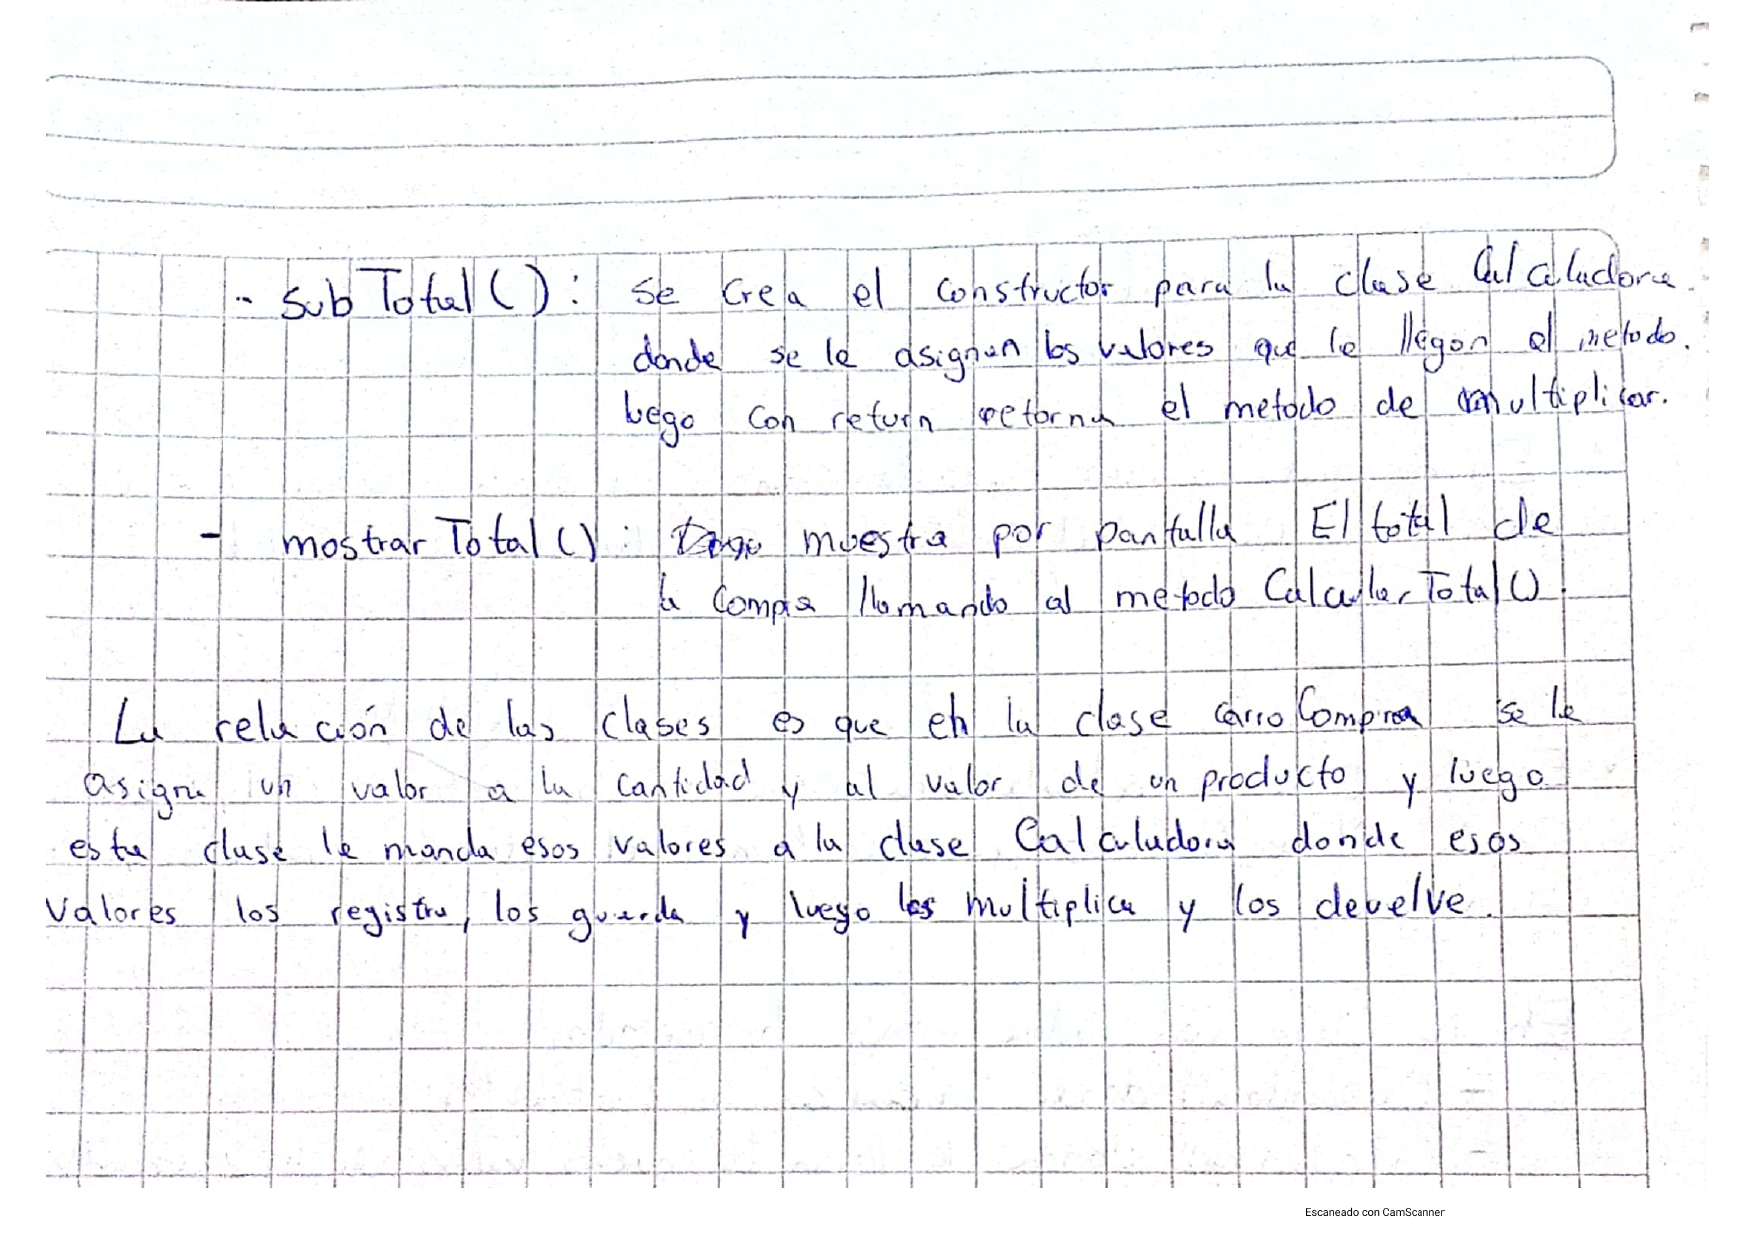 - subTotal(): se crea el constructor para la clase Calculadora
donde se le asignan los valores que le llegan el metodo.
luego con return retorna el metodo de multiplicar.
- mostrarTotal(): muestra por pantalla El total de
la Compra llamando al metodo CalcularTotal().
La relación de las clases es que en la clase carroCompra se le
asigna un valor a la cantidad y al valor de un producto y luego
esta clase le manda esos valores a la clase Calculadora donde esos
valores los registra, los guarda y luego los multiplica y los devuelve.
Escaneado con CamScanner